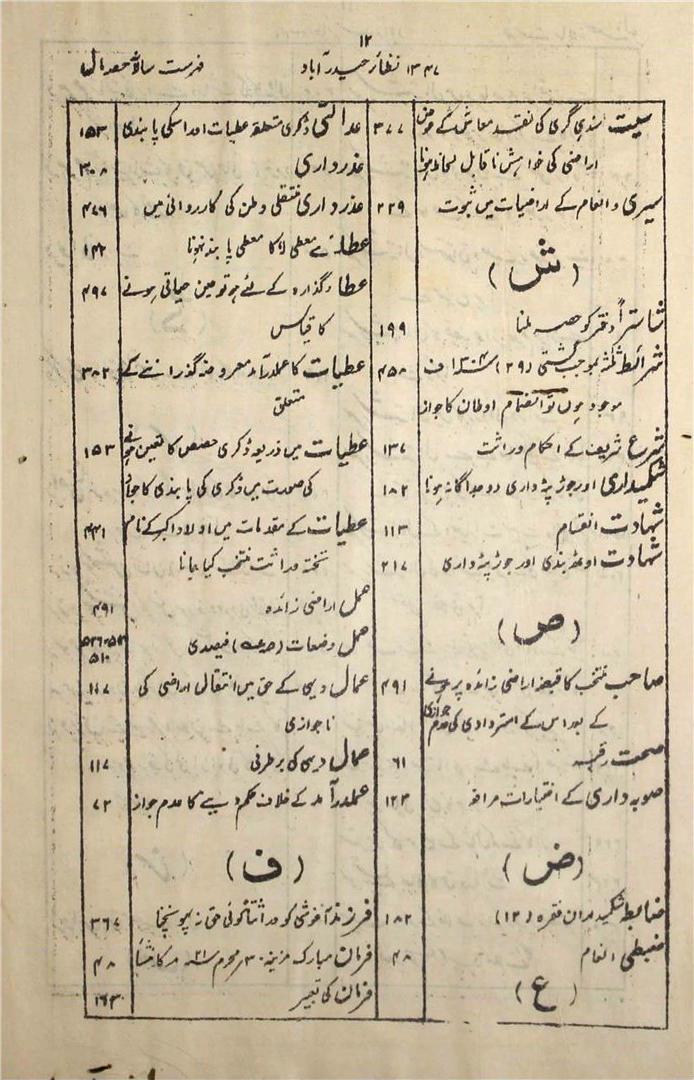 ۱۲
فہرست سالانہ حصہ مال
نظائر حیدرآباد
۱۳۴۷
سیت سندی گری کی نقد معاش کے عوض ۳۷۷
اراضی کی خواہش ناقابل لحاظ ہونا
سیری و انعام کے اراضیات میں ثبوت ۲۲۹
(ش)
شاستراً دختر کو حصہ ملنا ۱۹۹
شرائط ثلثہ بموجب گشتی (۲۹) ۴۵۸
موجود ہوں تو انضمام اوطان کا جواز
شرع شریف کے احکام وراثت ۱۳۷
شکمیداری اور جوڑ پٹہ داری دو جداگانہ ہونا ۱۸۲
شہادت انقسام ۱۱۳
شہادت اوعہ بندی اور جوڑ پٹہ داری ۲۱۷
(ص)
صاحب منتخب کا قبضہ اراضی زائدہ پر ہونے ۴۹۱
کے بعد اس کے استردادی کی عدم جوازی
صحت رقبہ ۶۱
صوبہ داری کے اختیارات مرافعہ ۱۲۳
(ض)
ضابطہ شکمیداران فقرہ (۱۲) ۱۸۲
ضبطی انعام ۴۸
(ع)
عدالتی ڈگری متعلقہ عطیات اور اسکی پابندی ۱۵۳
عذرداری ۳۰۸
عذرداری منتقلی وطن کی کارروائی میں ۴۷۶
عطائے معطی لا کا معطی پابند نہونا ۱۴۲
عطا و گذارہ کے لئے ہو تو حین حیاتی ہونے ۴۹۷
کا قیاس
عطیات کا عملدرآمد معروضہ گذراننے کے ۳۸۲
متعلق
عطیات میں ذریعہ ڈگری حصص کا تعین ہونے ۱۵۳
کی صورت میں ڈگری کی پابندی کا جواز
عطیات کے مقدمات میں اولاد اکبر کے نام ۴۴۱
تختہ وراثت منتخب کیا جانا
عمل اراضی زائدہ ۴۹۱
عمل وضعات فیصدی
۵۱۰
عمال دیہی کے حق میں انتقال اراضی کی ۱۱۷
ناجوازی
عمال دیہی کی برطرفی ۱۱۷
عملدرآمد کے خلاف حکم دینے کا عدم جواز ۷۲
(ف)
فرزند آغوشی کو وراثتاً کوئی حق نہ پہونچنا ۳۶۷
فرمان مبارک مزینہ ۳۰ محرم کا منشأ ۴۸
فرمان کی تعبیر ۱۶۳